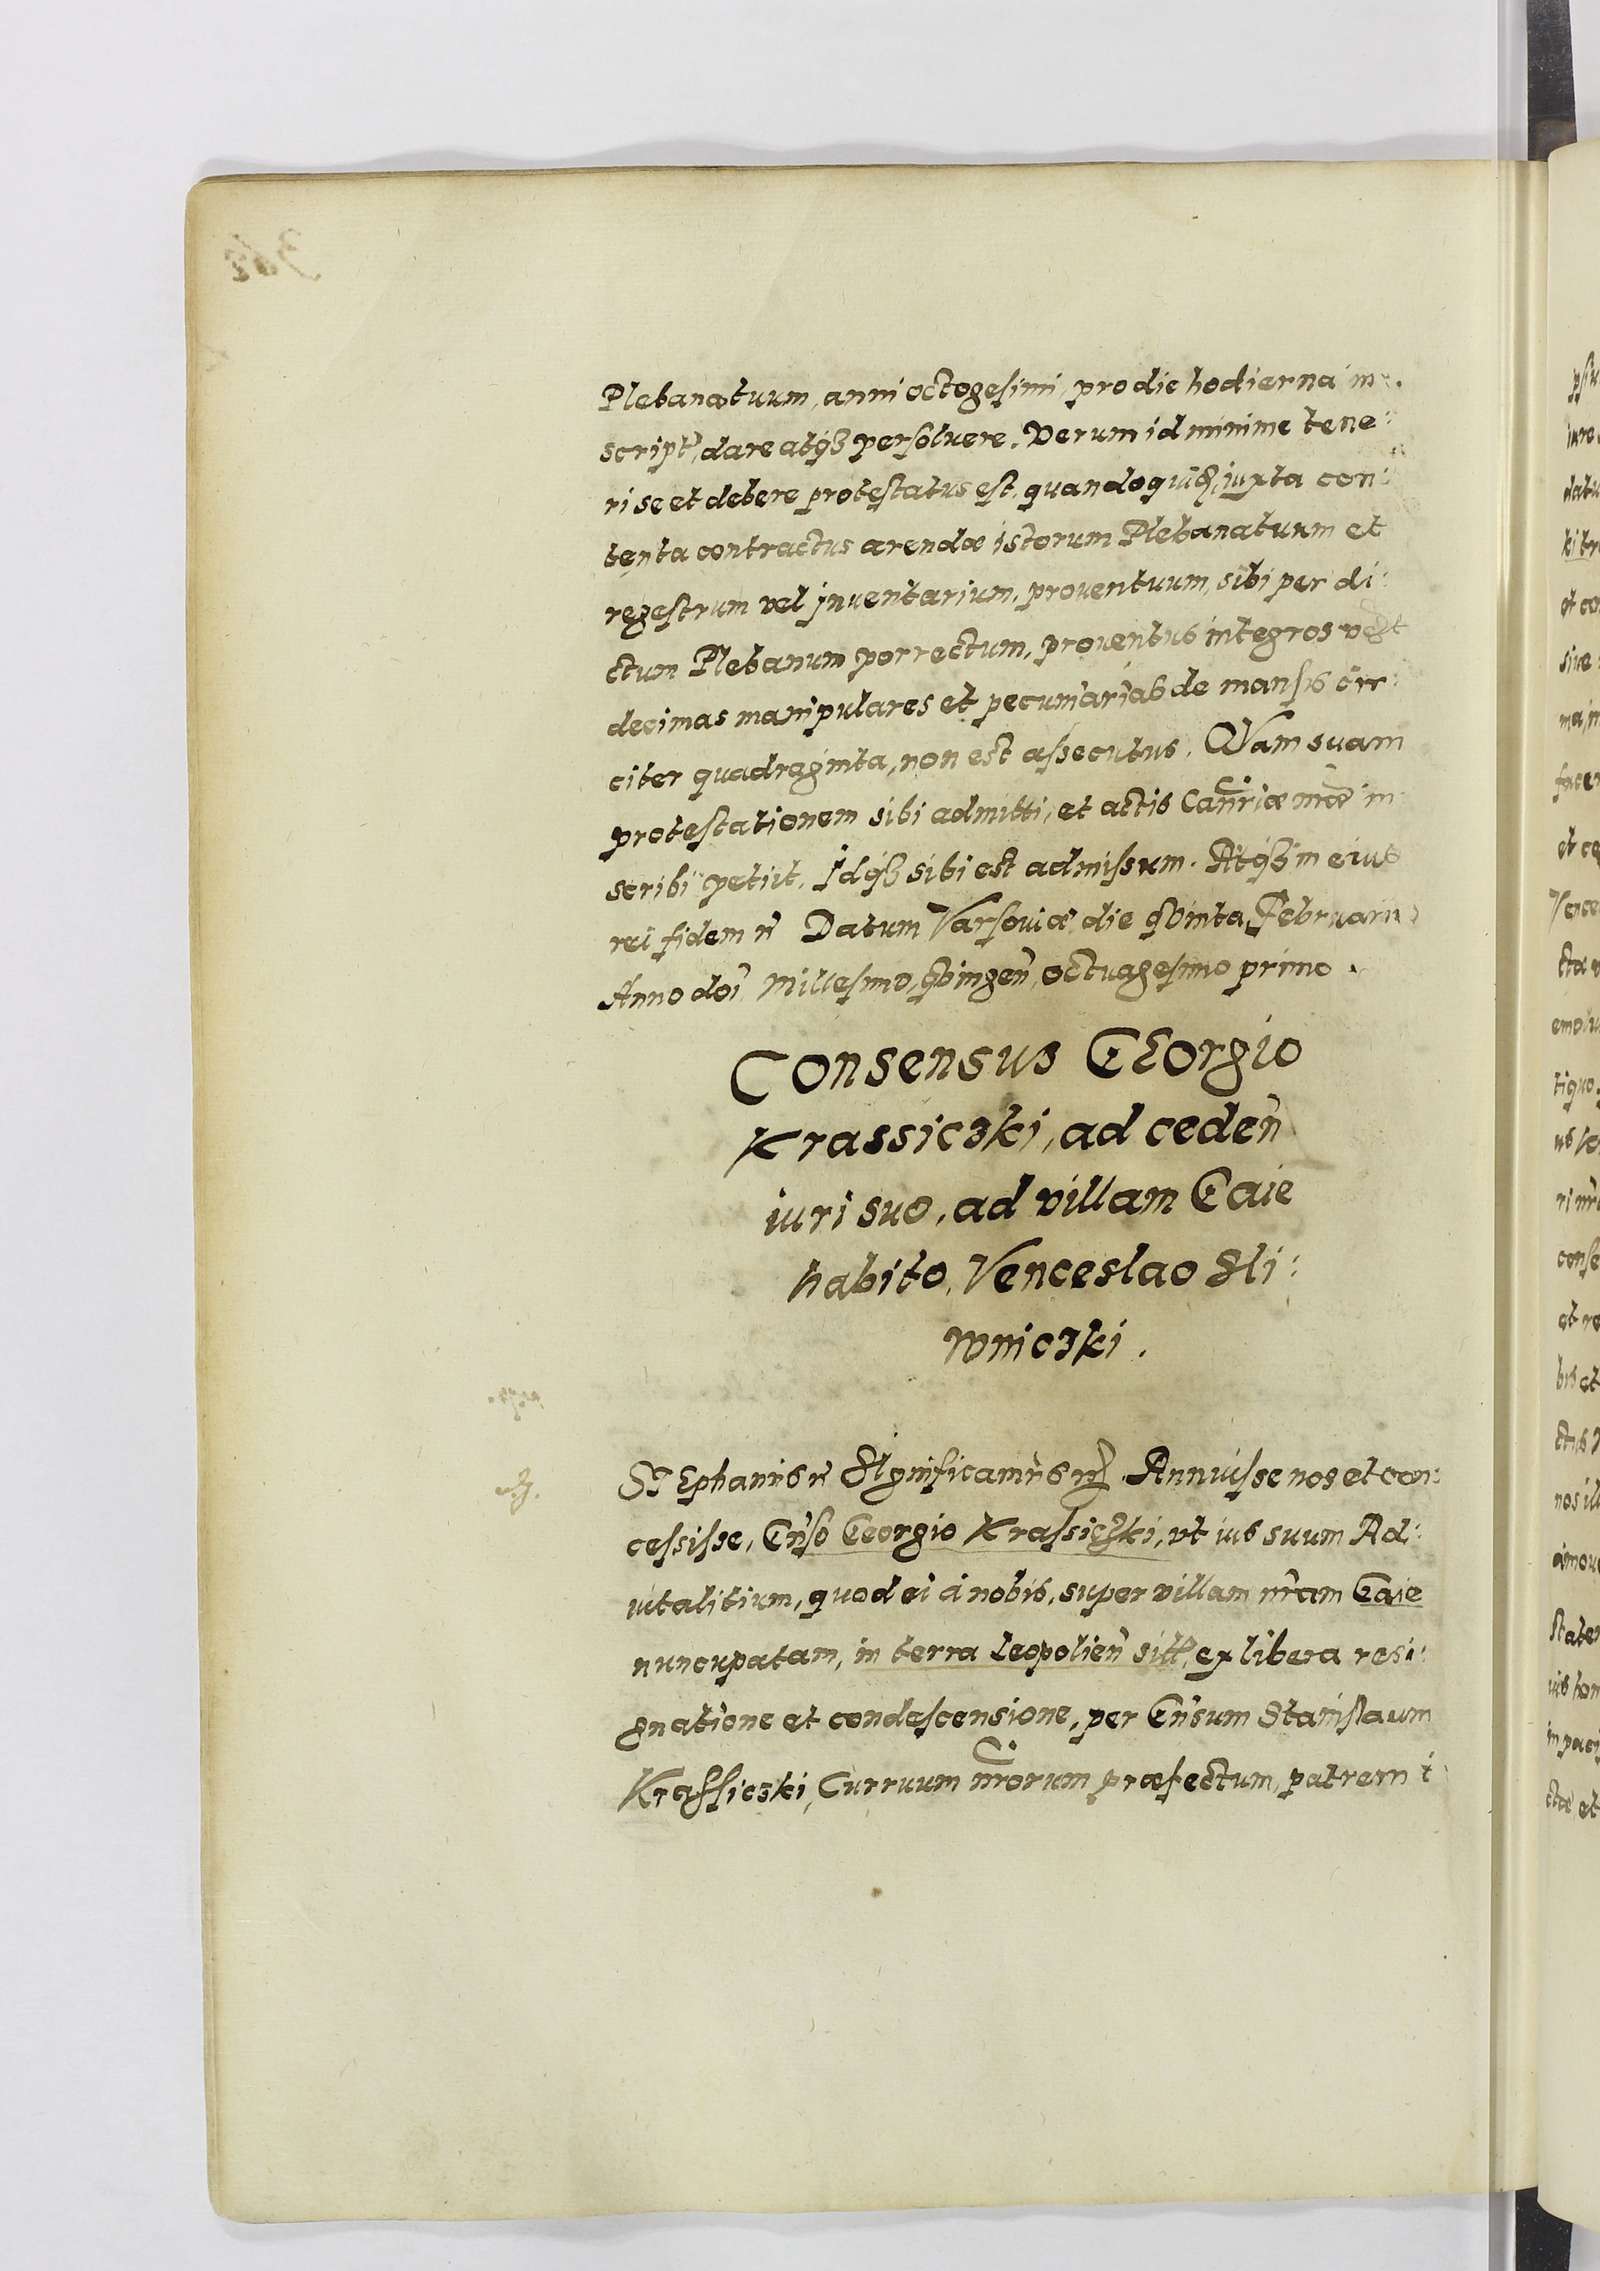 Plebanatuum, anni octogesimi, pro die hodierna in:
script, dare atq3 persoluere. Verum id minime tene:
ri se et debere protestatus est, quandoquid, iuxta con:
tenta contractus arendæ istorum Plebanatuum et
regestrum vel jnventarium, proventuum, sibi per di:
ctum Plebanum porrectum, proventus integros vest
decimas manipulares et pecuniarias de mansis cir:
citer quadraginta, non est assecutus. Quam suam
protestationem sibi admitti, et actis Canriæ nræ in
scribi petiit, Idq3 sibi est admissum. Atq3 in eius
rei fidem Datum Varsoviæ die quinta Februarii
Anno doi Millesimo, quingen, octuagesimo primo.
Consensus Georgio
Krassiczki, ad ceden
iuri suo, ad villam Gaie
habito, Venceslao Sli:
wniczki.
Stephanus Significamus Annuisse nos et con:
cessisse, Gnso Georgio Krassiczki, vt ius suum Ad:
vitalitium, quod ei à nobis, super villam nram Gaie
nuncupatam, in terra Leopolien sitt, ex libera resi:
gnatione et condescensione, per Gnsum Stanislaum
Krassiczki, Curruum nrorum præfectum, patrem i